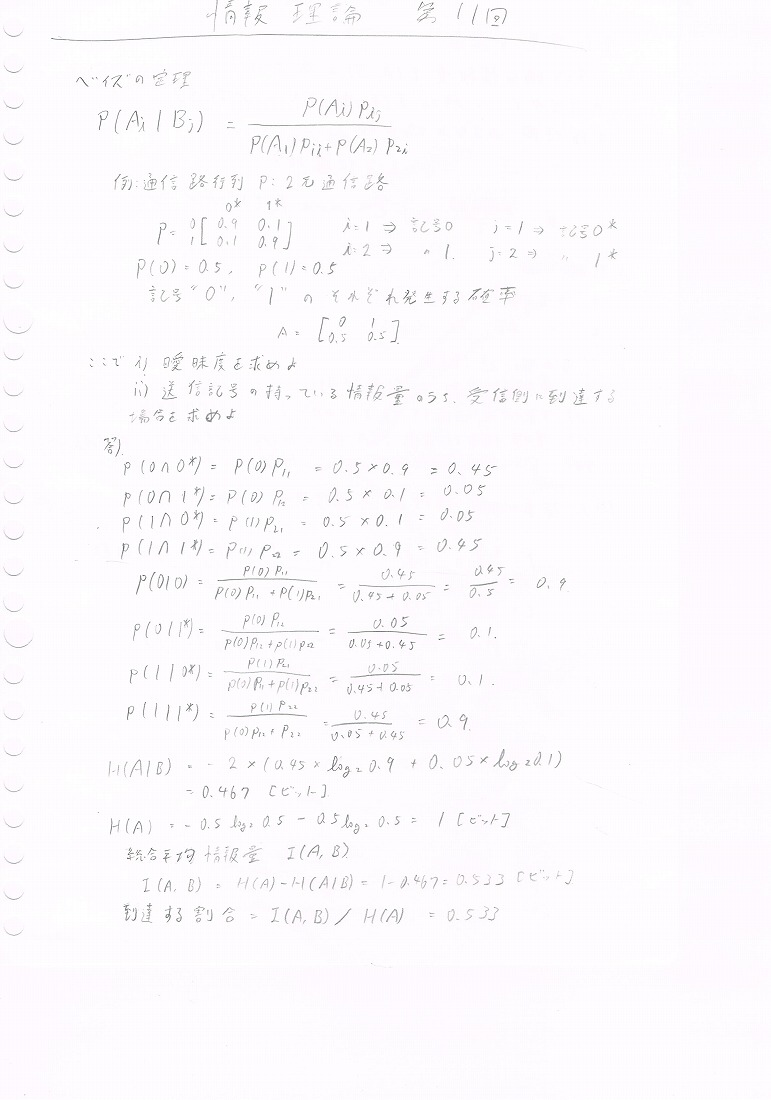 情報理論 第11回
ベイズの定理
P(Ai|Bj) = P(Ai)Pij / P(A1)P1i+P(A2)P2i
例:通信路行列 P:2元通信路
0* 1*
P= 0[0.9 0.1
1 0.1 0.9]
i=1 ⇒ 記号0 j=1 ⇒ 記号0*
i=2 ⇒ 〃 1. j=2 ⇒ 〃 1*
P(0)=0.5, P(1)=0.5
記号"0", "1" のそれぞれ発生する確率
A= [0 1
0.5 0.5]
ここで i) 曖昧度を求めよ
ii) 送信記号の持っている情報量のうち、受信側に到達する
場合を求めよ
答).
P(0∩0*)= P(0)P11 = 0.5×0.9 = 0.45
P(0∩1*)= P(0)P12 = 0.5×0.1 = 0.05
P(1∩0*)= P(1)P21 = 0.5×0.1 = 0.05
P(1∩1*)= P(1)P22 = 0.5×0.9 = 0.45
P(0|0) = P(0)P11 / P(0)P11+P(1)P21 = 0.45 / 0.45+0.05 = 0.45 / 0.5 = 0.9
P(0|1*)= P(0)P12 / P(0)P12+P(1)P22 = 0.05 / 0.05+0.45 = 0.1.
P(1|0*)= P(1)P21 / P(0)P11+P(1)P22 = 0.05 / 0.45+0.05 = 0.1.
P(1|1*)= P(1)P22 / P(0)P12+P22 = 0.45 / 0.05+0.45 = 0.9.
H(A|B) = -2×(0.45×log2 0.9 + 0.05×log2 0.1)
= 0.467 [ビット]
H(A) = -0.5 log2 0.5 - 0.5 log2 0.5 = 1 [ビット]
総合平均情報量 I(A,B)
I(A,B) = H(A)-H(A|B) = 1-0.467=0.533 [ビット]
到達する割合 = I(A,B) / H(A) = 0.533